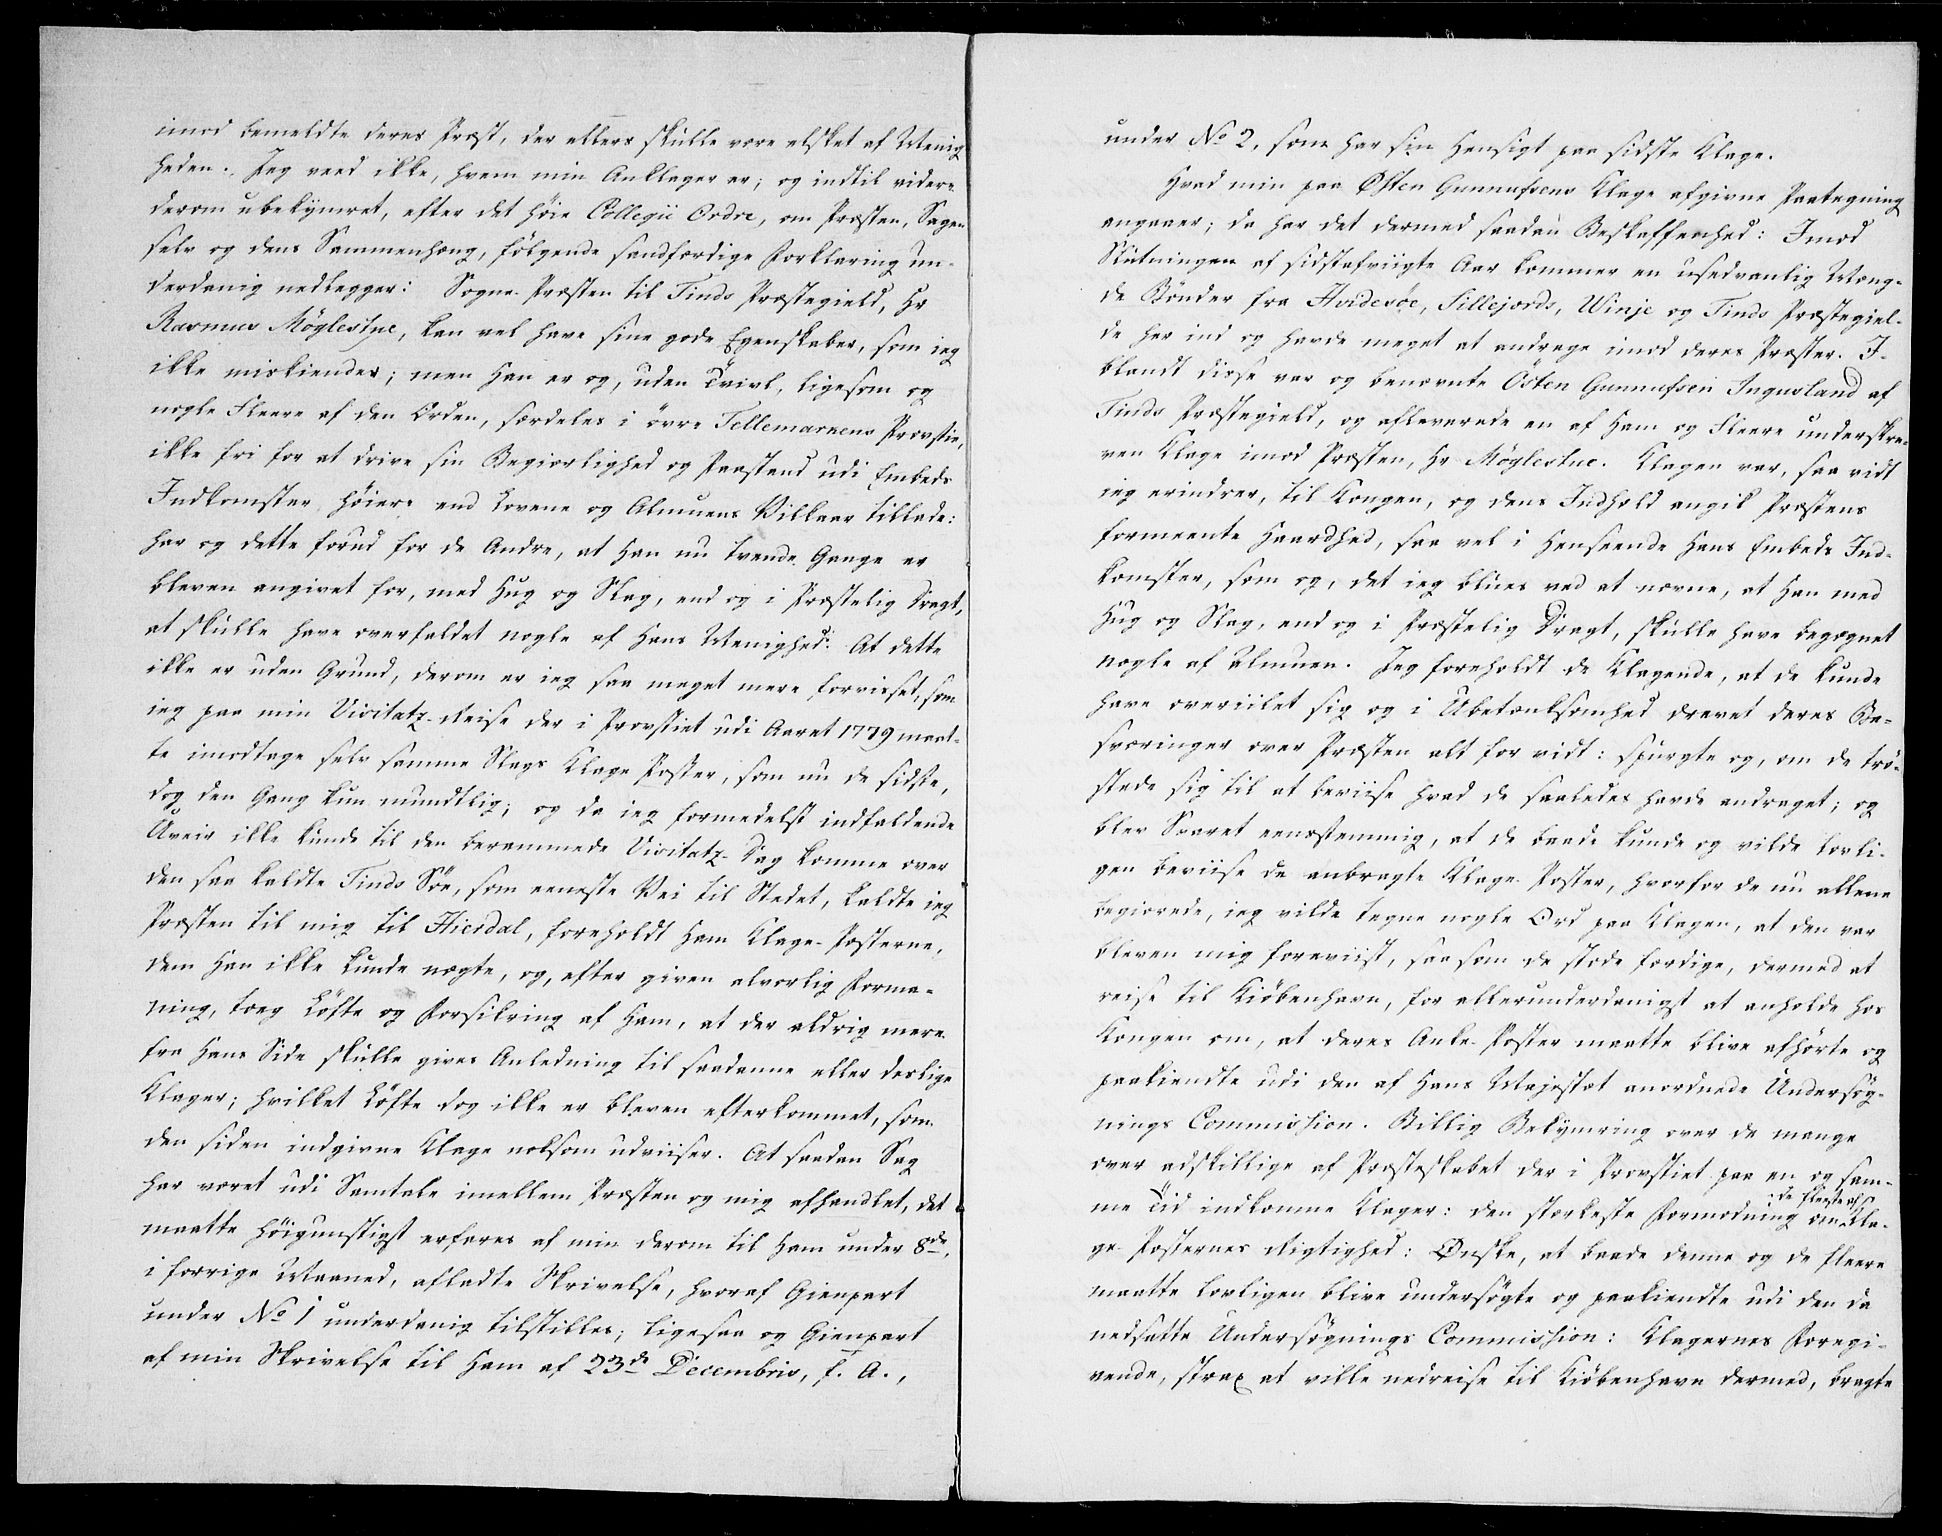 imod bemeldte deres Præst, der ellers skulle være elsket af Menig
heden. Jeg veed ikke, hvem min Anklager er; og indtil videre
derom ubekÿmret, efter det höie Collegii Ordre, om Præsten, Sagen
selv og dens Sammenhæng, fölgende sandfærdige Forklaring un-
derdanig nedlægger: Sogne-Præsten til Tinds Præstegield, Hr
Rasmus Möglestue, kan vel have sine gode Egenskaber, som ieg
ikke miskiender; men Han er og, uden Tvivl, ligesom og
nogle Fleere af den Orden, særdeles i övre Tellemarkens Provstie,
ikke fri for at drive sin Begiærlighed og Paastand udi Embeds
Indkomster höiere end Lovene og Almuens Vilkaar tillade:
har og dette forud for de Andre, at Han nu tvende Gange er
bleven angivet for, med Hug og Slag, end og i Præstelig Dragt,
at skulle have overfaldet nogle af Hans Menighed. At dette
ikke er uden Grund, derom er ieg saa meget mere forvisset, som
ieg paa min Visitatz-Reise der i Provstiet udi Aaret 1779 maat-
te imodtage selv samme Slags Klage Poster, som nu de sidste,
dog den Gang kun mundtlig; og da ieg formedelst indfaldende
Uveir ikke kunde til den berammede Visitatz-Dag komme over
den saa kaldte Tinds Söe, som eeneste Vei til Stedet, kaldte ieg
Præsten til mig til Hierdal, foreholdt Ham Klage-Posterne,
dem Han ikke kunde nægte, og, efter given alvorlig Forma-
ning, toeg Löfte og Forsikring af Ham, at der aldrig mere
fra Hans Side skulle gives Anledning til saadanne eller deslige
Klager; hvilket Löfte dog ikke er bleven efterkommet, som
den siden indgivne Klage noksom udviiser. At saadan Sag
har været udi Samtale imellem Præsten og mig afhandlet, det
maatte höigunstigst erfares af min derom til Ham under 8de
i forrige Maaned, afladte Skrivelse, hvoraf Gienpart
under No 1 underdanig tilstilles; ligesaa og Gienpart
af min Skrivelse til Ham af 23de Decembris, f. A.,
under No 2, som har sin Hensigt paa sidste Klage.
Hvad min paa Østen Gunnufsens Klage afgivne Paategning
angaaer; da har det dermed saadan Beskaffenhed: Imod
Slutningen af sidstafvigte Aar kommer en usedvanlig Mæng-
de Bönder fra Hvidesöe, Sillejords, Winje og Tinds Præstegiel-
de her ind og havde meget at andrage imod deres Præster. I-
blandt disse var og benævnte Östen Gunnufsen Ingusland af
Tinds Præstegield, og afleverede en af Ham og Fleere underskre-
ven Klage imod Præsten, Hr Möglestue. Klagen var, saa vidt
ieg erindrer, til Kongen, og dens Indhold angik Præstens
formeente Haardhed, saa vel i Henseende Hans Embeds Ind-
komster, som og, det ieg blues ved at nævne, at Han med
Hug og Slag, end og i Præstelig Dragt, skulle have begegnet
nogle af Almuen. Jeg foreholdt de Klagende, at de kunde
have overiilet sig og i Ubetænksomhed drevet deres Be-
sværinger over Præsten alt for vidt: spurgte og, om de trö-
stede sig til at beviise hvad de saaledes havde andraget; og
blev Svaret eenstemmig, at de baade kunde og vilde lovli-
gen beviise de anbragte Klage-Poster, hvorfor de nu allene
begiærede, ieg vilde tegne nogle Ord paa Klagen, at den var
bleven mig foreviist, saasom de stode færdige, dermed at
reise til Kiöbenhavn, for allerunderdanigst at anholde hos
Kongen om, at deres Anke-Poster maatte blive afhörte og
paakiendte udi den af Hans Majestæt anordnede Undersög-
nings Commission. Billig Bekÿmring over de mange
over adskillige af Præsteskabet der i Provstiet paa en og sam-
me Tid indkomne Klager: den stærkeste Formodning om de fleeste af Kla-
ge-Posternes Rigtighed: Ønske, at baade denne og de fleere
maatte lovligen blive undersögte og paakiendte udi den da
nedsatte Undersögnings Commission: Klagernes Foregi-
vende, strax at ville nedreise til Kiöbenhavn dermed, bragte